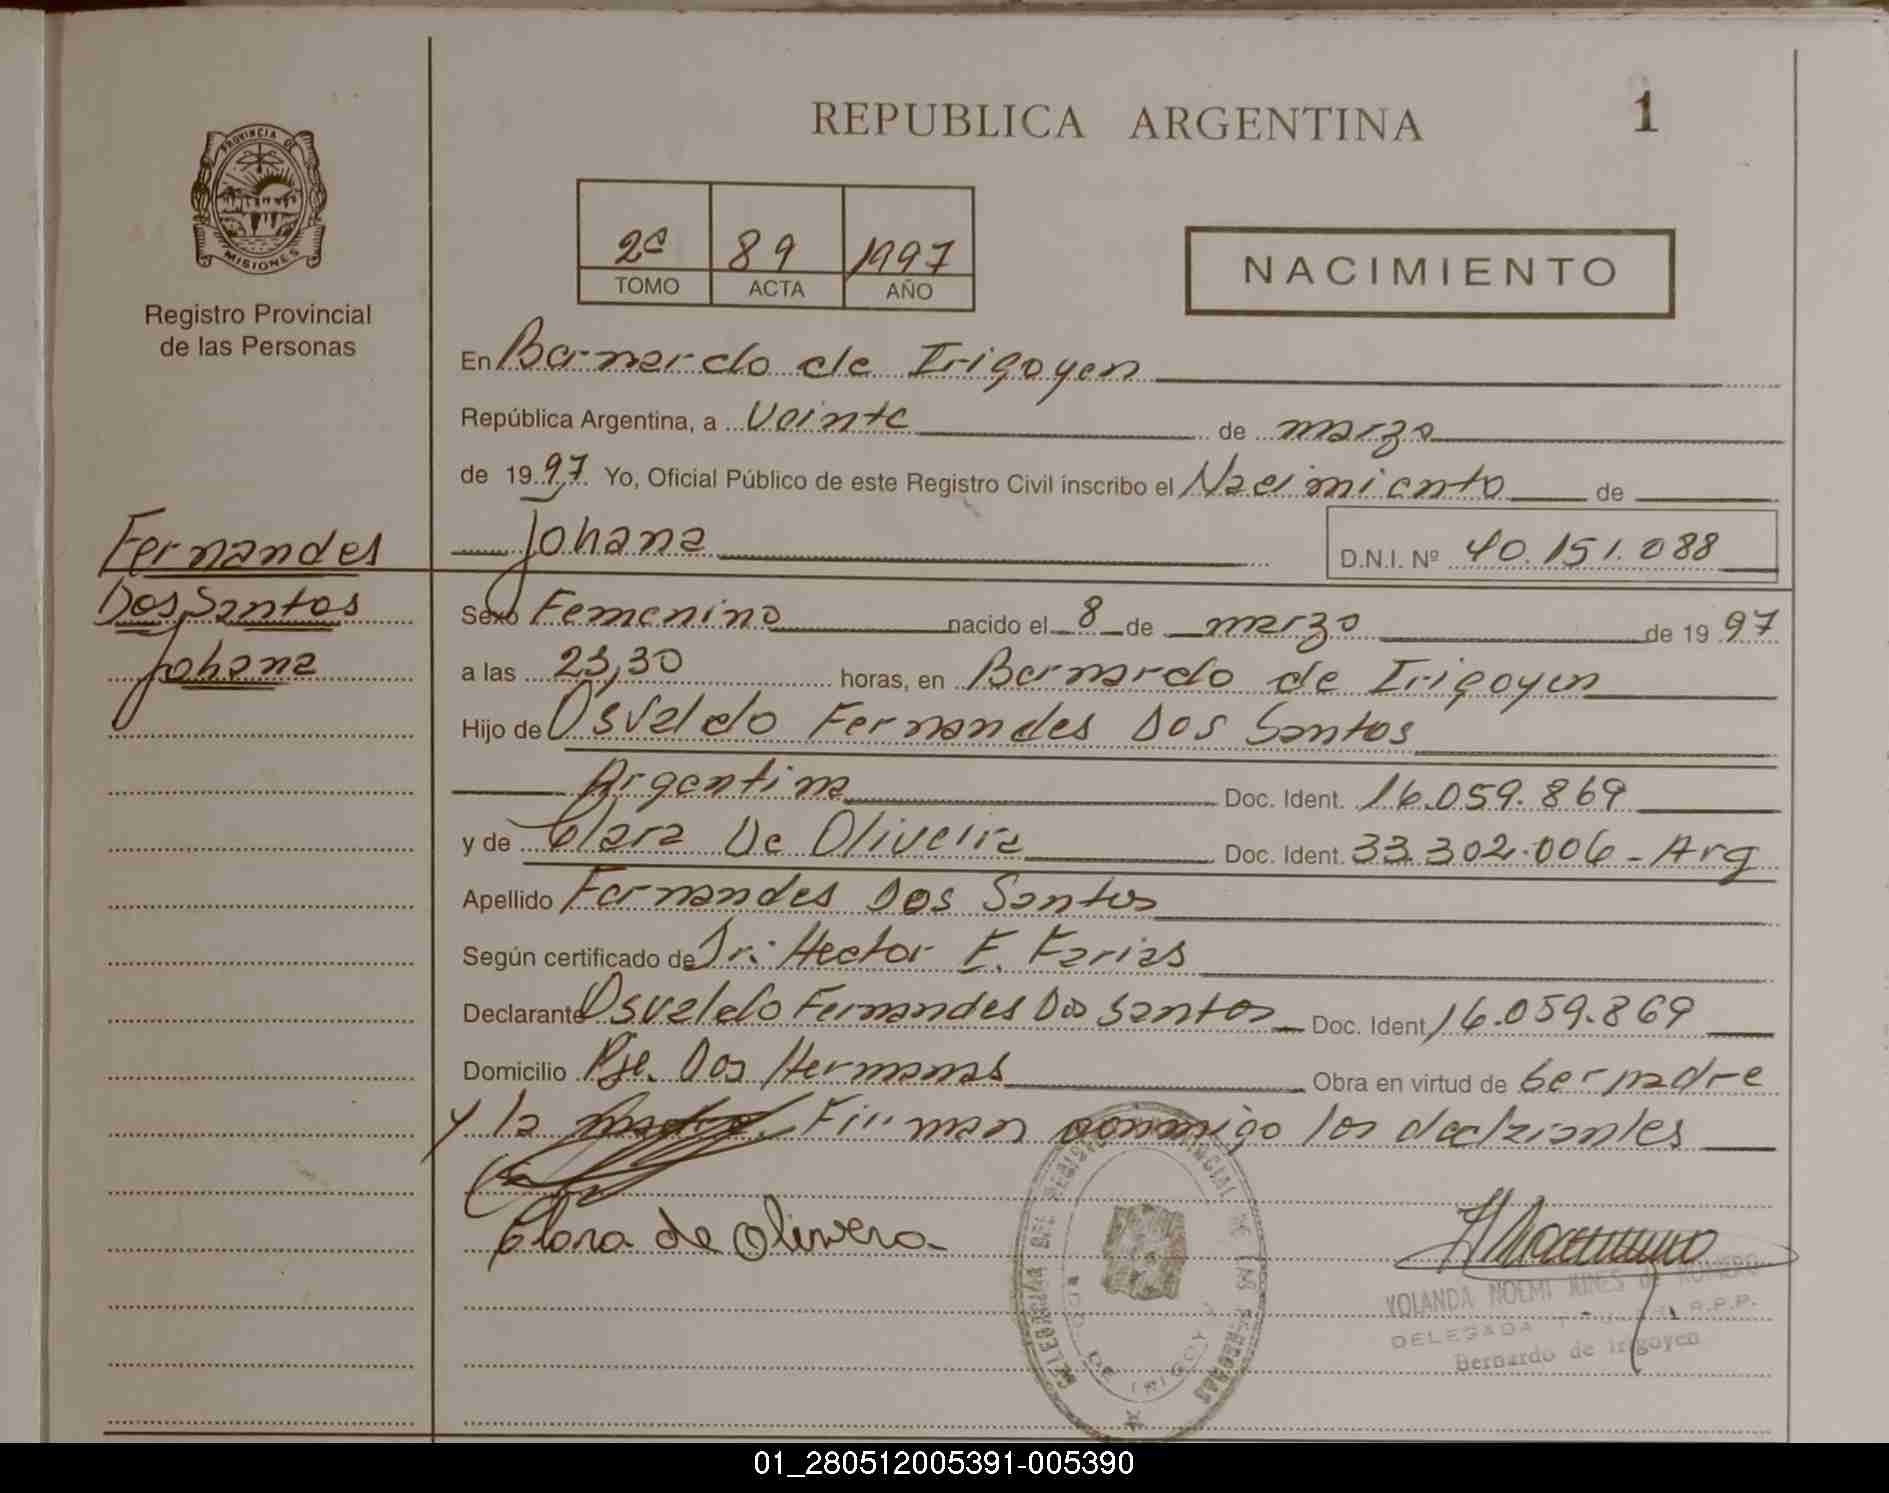 REPUBLICA ARGENTINA
1
PROVINCIA DE
MISIONES
Registro Provincial
de las Personas
2º 89 1997
TOMO ACTA AÑO
NACIMIENTO
En Bernardo de Irigoyen
República Argentina, a Veinte de marzo
de 1997 Yo, Oficial Público de este Registro Civil inscribo el Nacimiento de
Johana D.N.I. Nº 40.151.088
Fernandes
Dos Santos
Johana
Sexo Femenino nacido el 8 de marzo de 1997
a las 23,30 horas, en Bernardo de Irigoyen
Hijo de Osvaldo Fernandes Dos Santos
Argentina Doc. Ident. 16.059.869
y de Clara De Oliveira Doc. Ident. 33.302.006 - Arg
Apellido Fernandes Dos Santos
Según certificado de Dr: Hector F. Farias
Declarante Osvaldo Fernandes Dos Santos Doc. Ident. 16.059.869
Domicilio Pje. Dos Hermanas Obra en virtud de ser padre
y la Firman conmigo los declarantes
Clara de Olivera
DELEGACION DEL REGISTRO PROVINCIAL DE LAS PERSONAS
DE IRIGOY
YOLANDA NOEMI de ROMERO
DELEGADA R.P.P.
Bernardo de Irigoyen
01_280512005391-005390